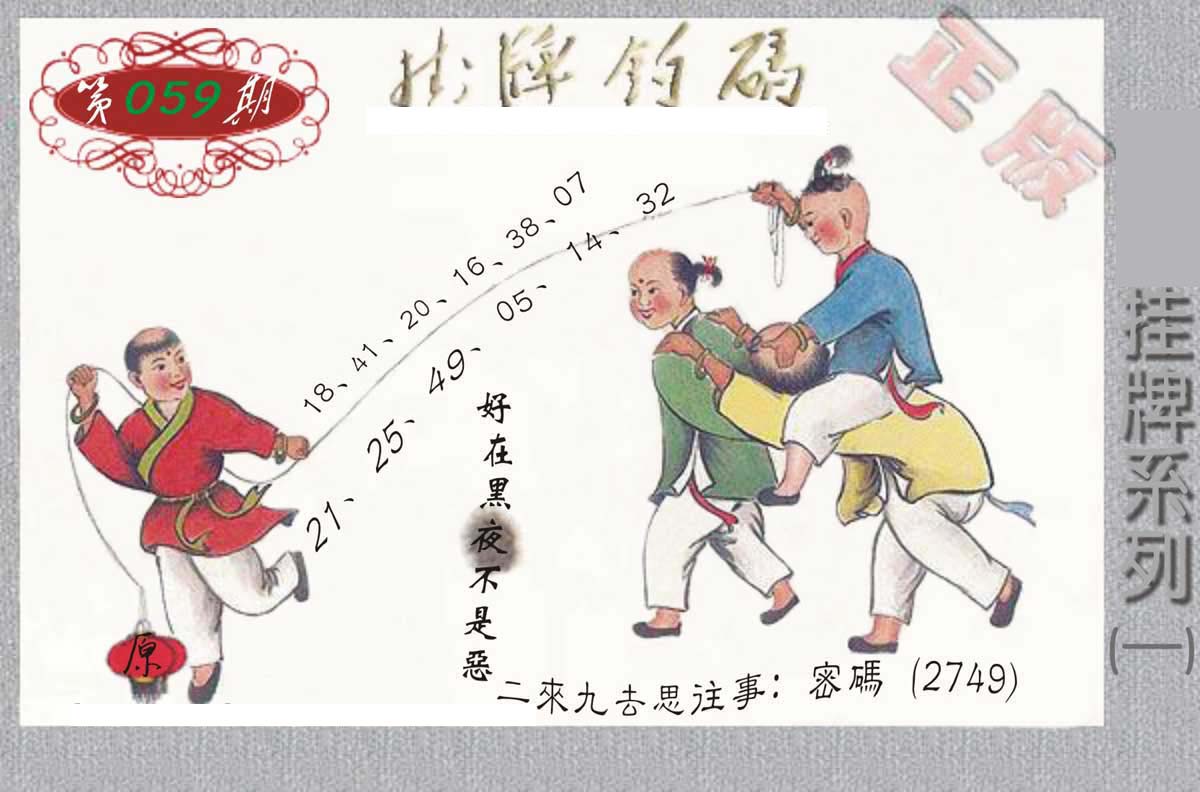 第059期
掛牌釣碼
正版
18、41、20、16、38、07
21、25、49、05、14、32
好在黑夜不是惡
原
二來九去思往事：密碼（2749）
挂牌系列(一)